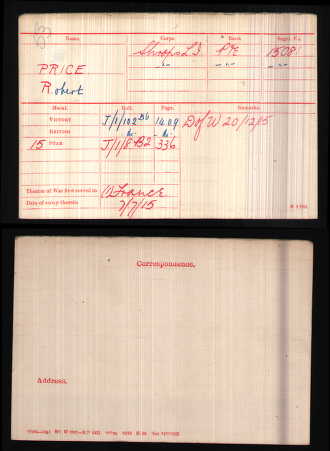 Name.
Corps.
Rank.
Regtl. No.
Shrops L.I. Pte 1508
" " "
PRICE.
Robert
Medal.
Roll.
Page.
Remarks.
Victory J/1/102 B6 1409 D of W 20/12/15
British do. do.
15 Star J/1/8 B2 336
Theatre of War first served in (1) France
Date of entry therein 7/7/15
Correspondence.
Address.